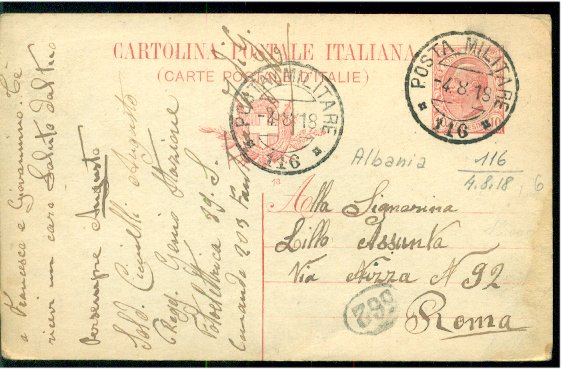 CARTOLINA POSTALE ITALIANA
(CARTE POSTALE D'ITALIE)
POSTA MILITARE
-4.8.18
116
POSTA MILITARE
-4.8.18
116
10
Albania
116
4.8.18
Alla Signorina
Lillo Assunta
Via Nizza N 92
Roma
662
a Francesca e Giovannino. Te
ricevi un caro saluto dal tuo
per sempre Augusto
Sold. Augusto
Regg. Genio Stazione
Fotoelettrica 39 S.
Comando 203